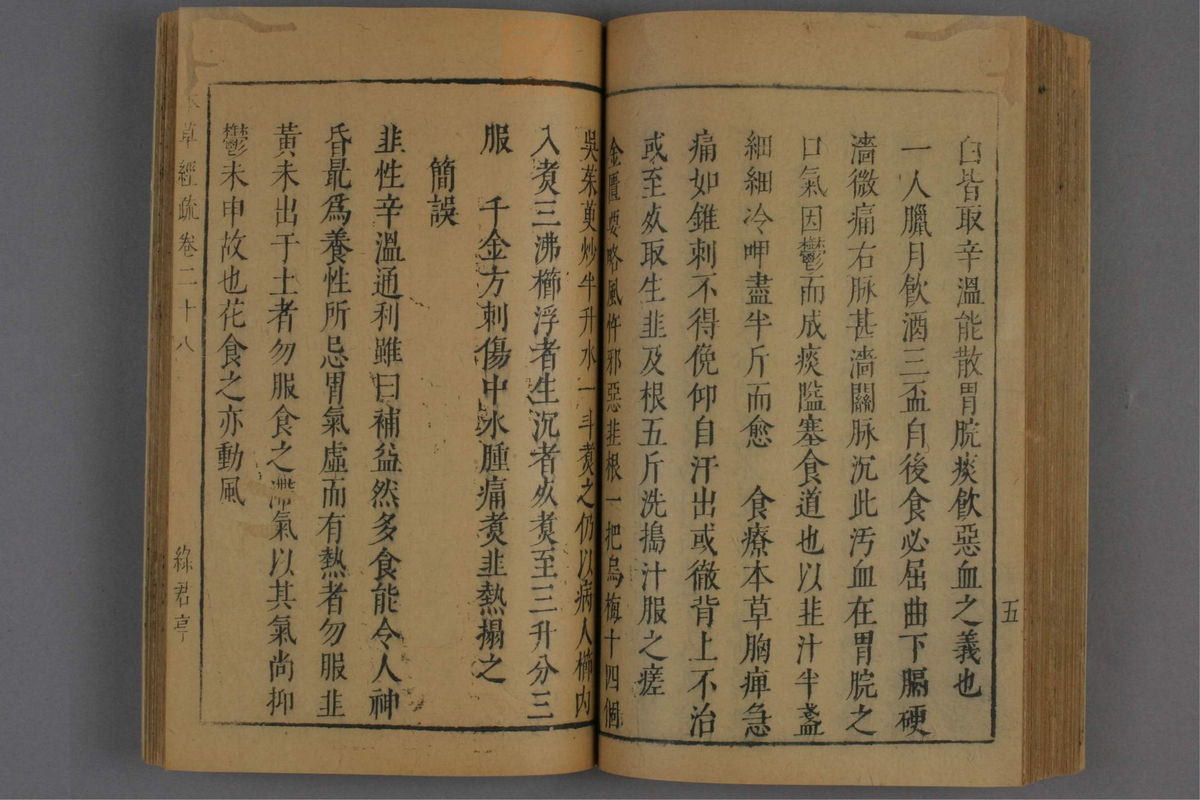 五
白皆取辛溫能散胃脘痰飲惡血之義也
一人臘月飲酒三盃自後食必屈曲下膈硬
濇微痛右脉甚濇關脉沉此汚血在胃脘之
口氣因鬱而成痰隘塞食道也以韭汁半盞
細細冷呷盡半斤而愈　食療本草胸痺急
痛如錐刺不得俛仰自汗出或徹背上不治
或至死取生韭及根五斤洗搗汁服之瘥
金匱要略風忤邪惡韭根一把烏梅十四個
吳茱萸炒半升水一斗煑之仍以病人櫛內
入煑三沸櫛浮者生沉者死煑至三升分三
服　千金方刺傷中水腫痛煑韭熱搨之
簡誤
韭性辛溫通利雖曰補益然多食能令人神
昏最爲養性所忌胃氣虛而有熱者勿服韭
黃未出于土者勿服食之滯氣以其氣尚抑
鬱未申故也花食之亦動風
草經疏卷二十八
綠君亭